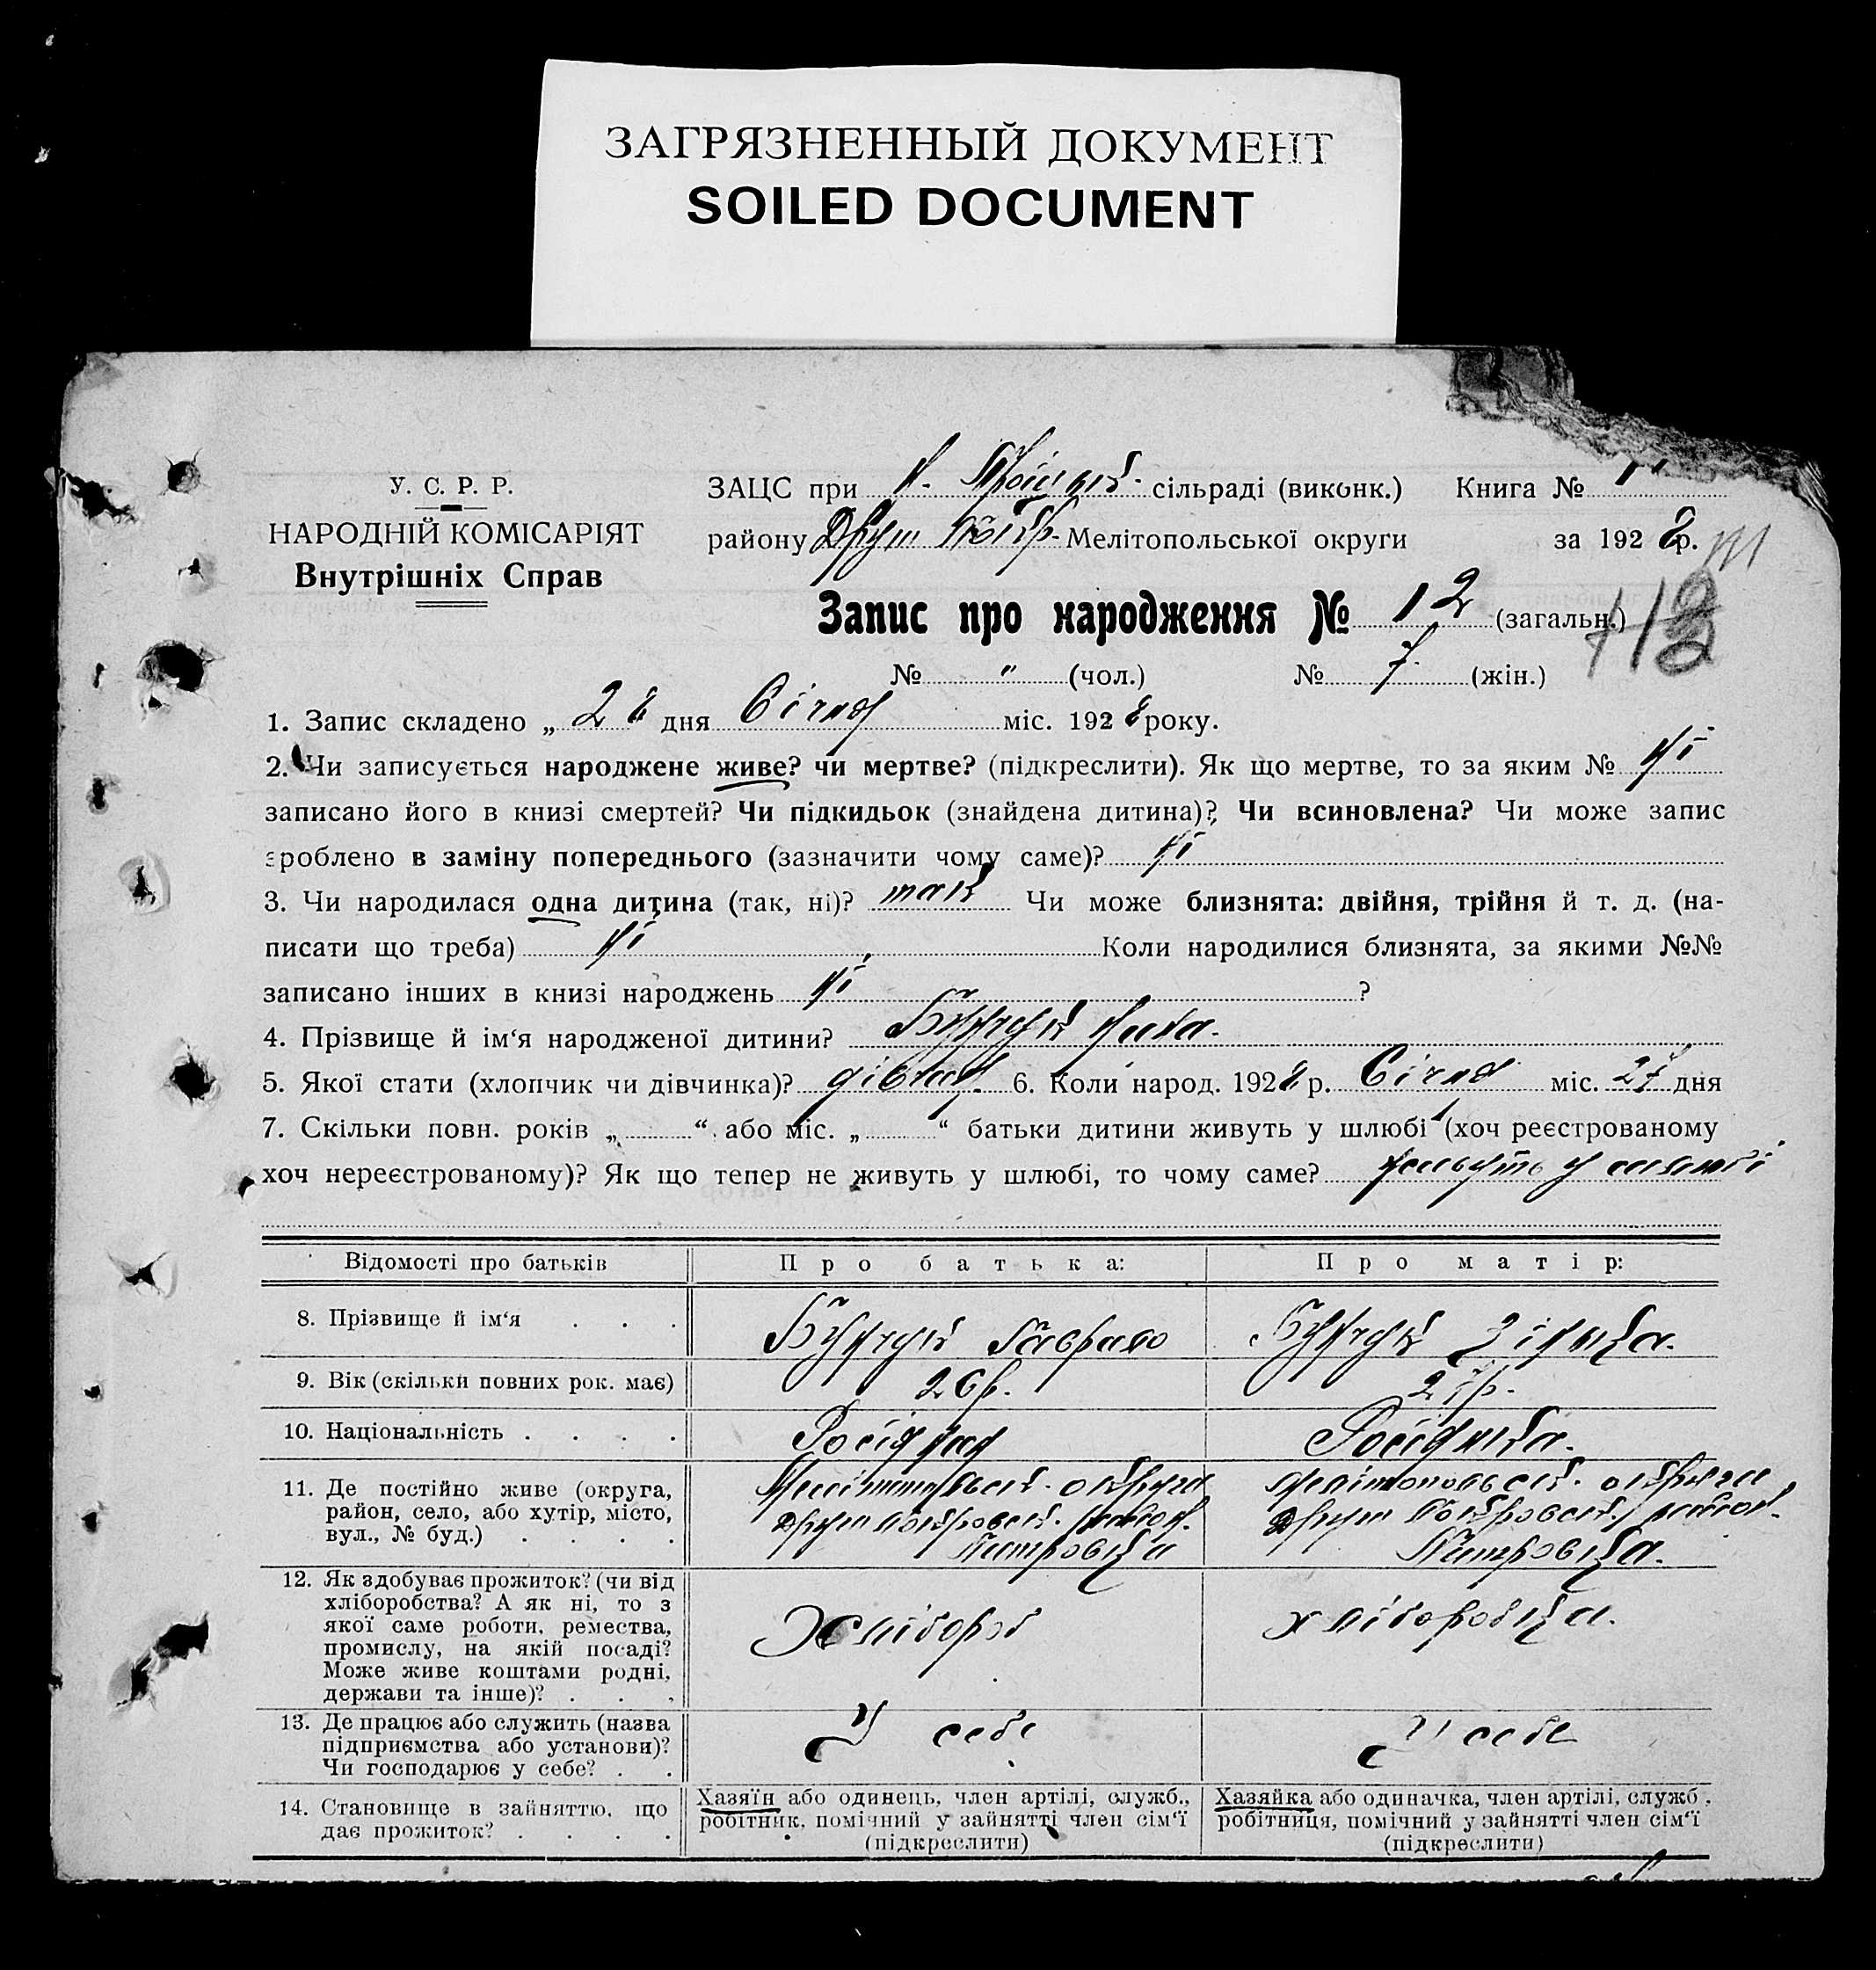 ЗАГРЯЗНЕННЫЙ ДОКУМЕНТ
SOILED DOCUMENT
У. С. Р. Р.
НАРОДНІЙ КОМІСАРІЯТ
Внутрішніх Справ
ЗАЦС при Н. сільраді (виконк.) Книга №
району Мелітопольської округи за 1928 р.
Запис про народження № 12 (загальн.)
№ " (чол.) № 7 (жін.)
1. Запис складено „ 28 дня Січня міс. 1928 року.
2. Чи записується народжене живе? чи мертве? (підкреслити). Як що мертве, то за яким № ні
записано його в книзі смертей? Чи підкидьок (знайдена дитина)? Чи всиновлена? Чи може запис
зроблено в заміну попереднього (зазначити чому саме)? ні
3. Чи народилася одна дитина (так, ні)? так Чи може близнята: двійня, трійня й т. д. (на-
писати що треба) ні Коли народилися близнята, за якими №№
записано інших в книзі народжень ні ?
4. Прізвище й ім‘я народженої дитини?
5. Якої стати (хлопчик чи дівчинка)? дівчин. 6. Коли народ. 1928 р. Січня міс. 27 дня
7. Скільки повн. років „ “ або міс. „ “ батьки дитини живуть у шлюбі (хоч реєстрованому
хоч нереєстрованому)? Як що тепер не живуть у шлюбі, то чому саме? живуть у шлюбі
Відомості про батьків Про батька: Про матір:
8. Прізвище й ім‘я . . . Гаврило
9. Вік (скільки повних рок. має) 26 р.
10. Національність . . . . Росіянин Росіянка.
11. Де постійно живе (округа,
район, село, або хутір, місто,
вул., № буд.) . . . .
Мелітопольськ. округи
район.
Петровка
Мелітопольськ. округи
район.
Петровка.
12. Як здобуває прожиток? (чи від
хліборобства? А як ні, то з
якої саме роботи, ремества,
промислу, на якій посаді?
Може живе коштами родні,
держави та інше)? . . .
Хлібороб
хліборобка.
13. Де працює або служить (назва
підприємства або установи)?
Чи господарює у себе? . .
У себе
У себе
14. Становище в зайняттю, що
дає прожиток? . . . .
Хазяїн або одинець, член артілі, служб.,
робітник, помічний у зайнятті член сім‘ї
(підкреслити)
Хазяйка або одиначка, член артілі, служб.,
робітниця, помічний у зайнятті член сім‘ї
(підкреслити)